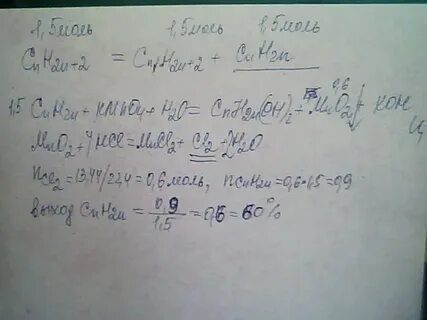 1,5моль 1,5моль 1,5моль
CnH2n+2 = CnH2n+2 + CnH2n
0,6
1,5 CnH2n + KMnO4 + H2O = CnH2n(OH)2 + MnO2↓ + KOH
MnO2 + 4HCl = MnCl2 + Cl2 + 2H2O
nCl2 = 13,44/22,4 = 0,6 моль, nCnH2n = 0,6·1,5 = 0,9
выход CnH2n = 0,9/1,5 = 0,6 = 60%